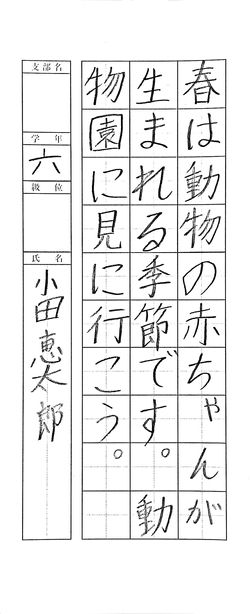 春は動物の赤ちゃんが
生まれる季節です。動
物園に見に行こう。
支部名
学年
六
級位
氏名
小田恵太郎